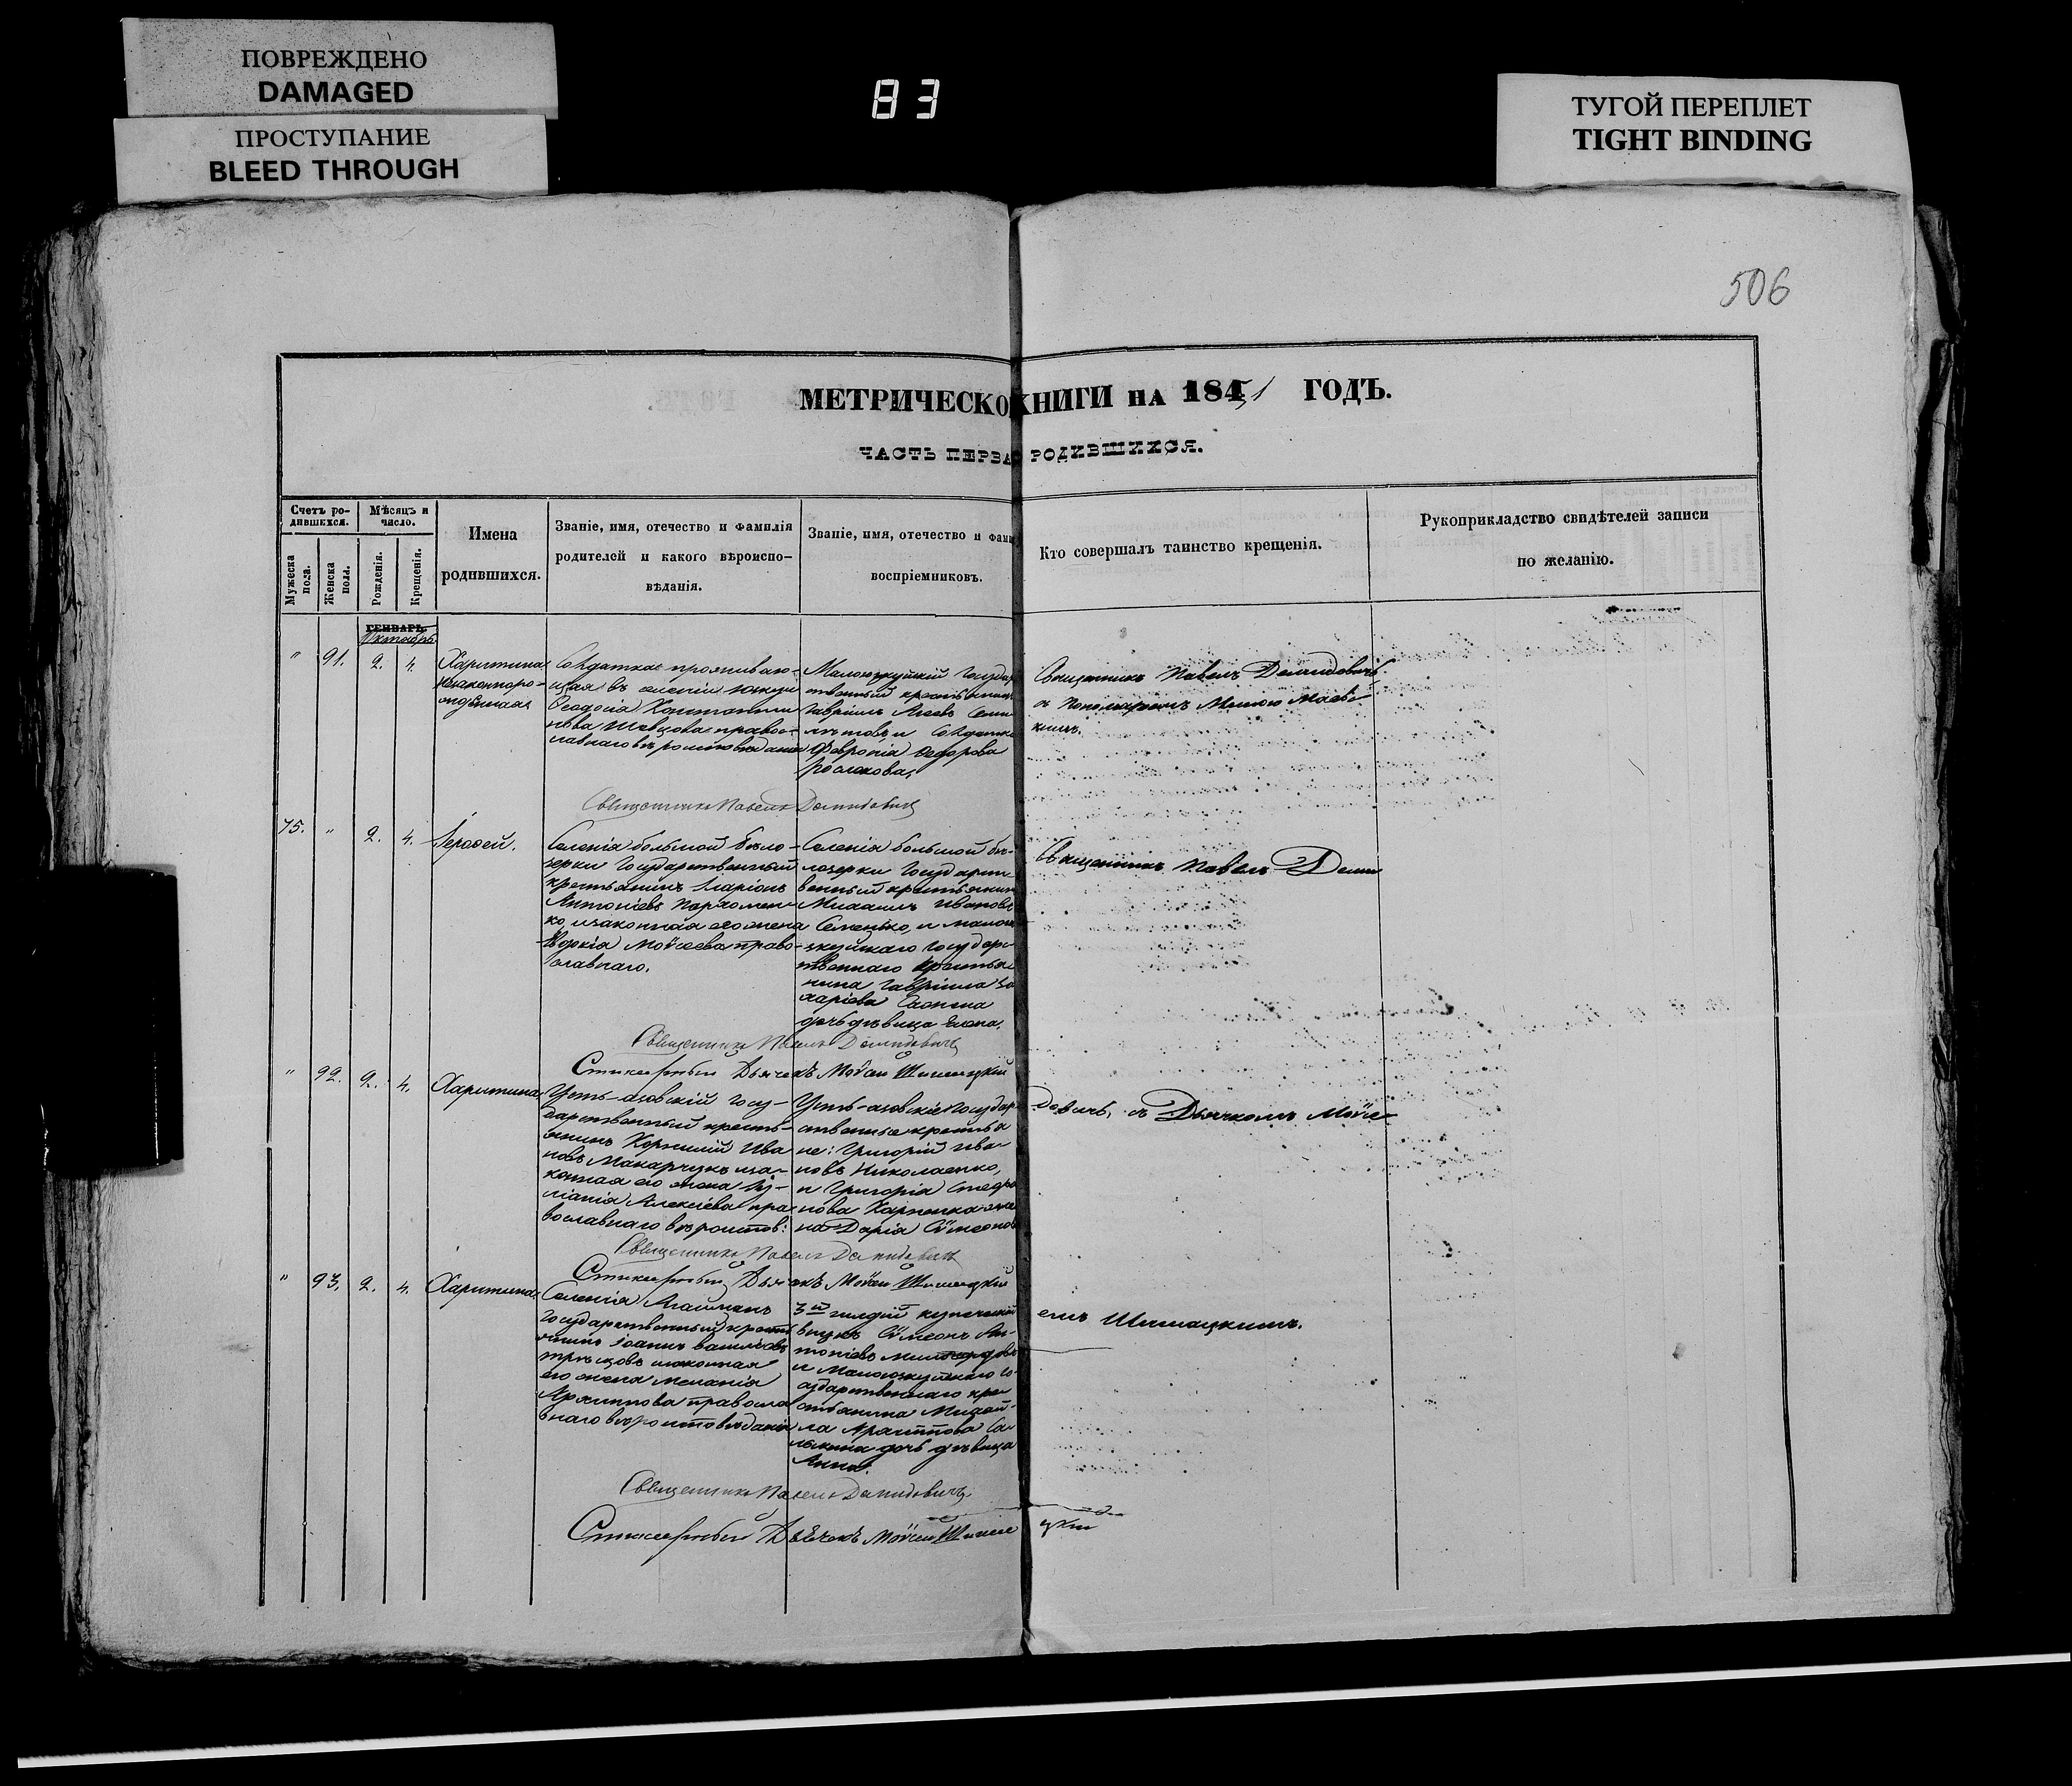 ПОВРЕЖДЕНО
DAMAGED
ПРОСТУПАНИЕ
BLEED THROUGH
83
ТУГОЙ ПЕРЕПЛЕТ
TIGHT BINDING
506
МЕТРИЧЕСКО КНИГИ НА 1851 ГОДЪ.
ЧАСТЬ ПЕРВА РОДИВШИХСЯ.
Счетъ ро-
дившихся.
Мужеска
пола.
Женска
пола.
Мѣсяцъ и
число.
Рожденія.
Крещенія.
Имена
родившихся.
Званіе, имя, отечество и фамилія
родителей и какого вѣроиспо-
вѣданія.
Званіе, имя, отечество и фами
воспріемниковъ.
Кто совершалъ таинство крещенія.
Рукоприкладство свидѣтелей записи
по желанію.
ГЕНВАРЬ
Октябрь
" 91. 2. 4.
Харитина
незаконноро-
жденная
Солдатка проживаю-
щая въ
Ѳеодосія Константи
нова Шевцова правос-
лавнаго вѣроисповѣданія
Государ
ственный крестьянинъ
Гавріилъ
и Солдатка
Февронія Ѳедорова
Священникъ Павелъ Демидовичъ
съ Пономаремъ
Священникъ Павелъ Демидовичъ
75. " 2. 4.
Іероѳей.
Селенія большой бѣло-
зерки Государственный
крестьянинъ Иларіонъ
Антоніевъ Пархомен-
ко, и законная его жена
Моѵсеева право-
славнаго.
Селенія большой бѣ-
лозерки Государст-
венный крестьянинъ
Михаилъ Ивановъ
Семенько, и
Государ-
ственнаго крестья-
нина Гавріила За
харіева
дочь дѣвица Елена.
Священникъ Павелъ Деми
Священникъ Павелъ Демидовичъ
Дьячекъ Моѵсей Шишацкій
" 92. 2. 4.
Харитина
Усть-азовскій Госу-
дарственный кресть-
янинъ Корнилій Ива
новъ Макарчукъ и за-
конная его жена Іу-
ліанія Алексіева пра
вославнаго вѣроиспов:
Усть-азовскіе Государ
ственные крестья
не: Григорій Ива-
новъ Николаенко,
и Григорія Стефа
нова Карпенка же
на Дарія Сѵмеонов
довичъ, съ Дьячкомъ Моѵсе
Священникъ Павелъ Демидовичъ
Дьячекъ Моѵсей Шишацкій
" 93. 2. 4.
Харитина
Селенія
Государственный крестья
янинъ Іоаннъ Василіевъ
и законная
его жена Меланія
Архиппова правосла
внаго вѣроисповѣданія
3й гильдіи купеческій
внукъ Сѵмеонъ Ан-
тоніевъ
и Го-
сударственнаго кре
стьянина Михаи-
ла Архиппова
дочь дѣвица
Анна.
емъ Шишацкимъ.
Священникъ Павелъ Демидовичъ
Дьячекъ Моѵсей Шишацкій